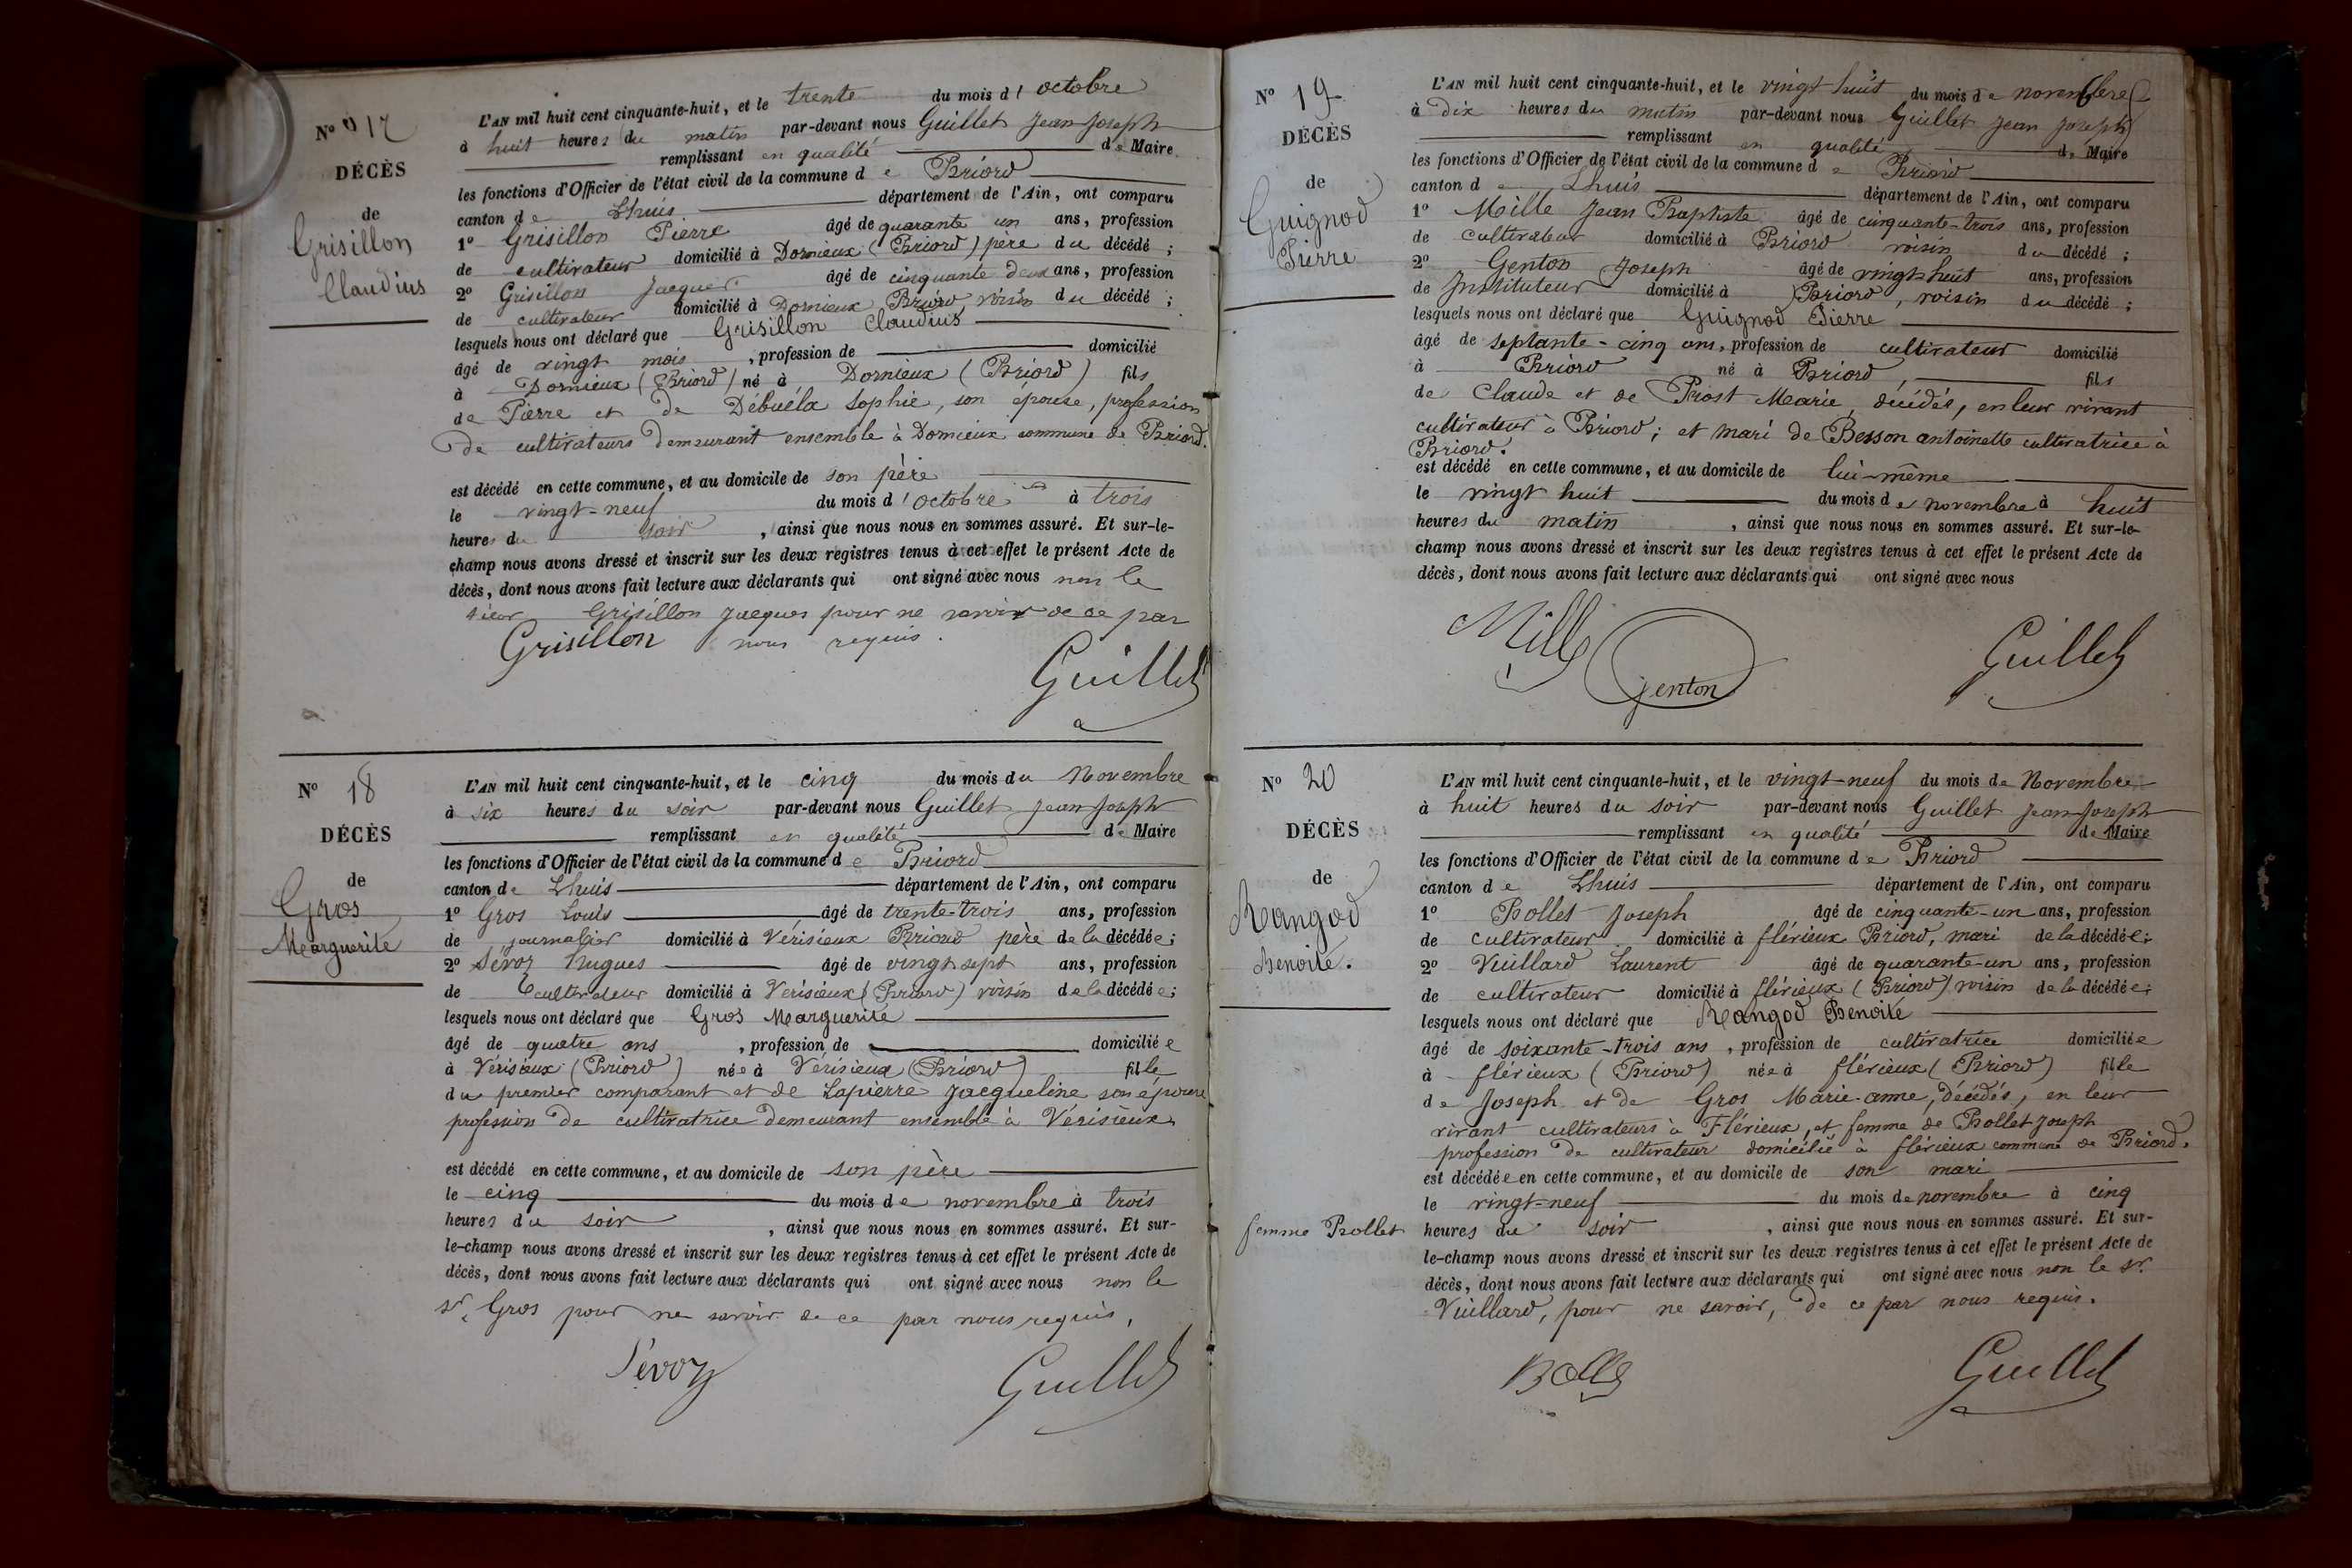 N° 17
DÉCÈS
de
Grisillon
Claudius
L'AN mil huit cent cinquante-huit, et le trente du mois d'octobre
à huit heures du matin par-devant nous Guillet Jean Joseph
remplissant en qualité de Maire
les fonctions d'Officier de l'état civil de la commune de Briord
canton de Lhuis département de l'Ain, ont comparu
1° Grisillon Pierre âgé de quarante un ans, profession
de cultivateur domicilié à Dornieux (Briord) père du décédé ;
2° Grisillon Jacques âgé de cinquante deux ans, profession
de cultivateur domicilié à Dornieux Briord, voisin du décédé ;
lesquels nous ont déclaré que Grisillon Claudius
âgé de vingt mois, profession de domicilié
à Dornieux (Briord) né à Dornieux (Briord) fils
de Pierre et de Débuéla Sophie, son épouse, profession
de cultivateurs demeurant ensemble à Dornieux commune de Briord.
est décédé en cette commune, et au domicile de son père
le vingt-neuf du mois d'octobre à trois
heures du soir, ainsi que nous nous en sommes assuré. Et sur-le-
champ nous avons dressé et inscrit sur les deux registres tenus à cet effet le présent Acte de
décès, dont nous avons fait lecture aux déclarants qui ont signé avec nous non le
sieur Grisillon Jacques pour ne savoir de ce par
nous requis.
Grisillon
Guillet
N° 18
DÉCÈS
de
Gros
Marguerite
L'AN mil huit cent cinquante-huit, et le cinq du mois du Novembre
à six heures du soir par-devant nous Guillet Jean Joseph
remplissant en qualité de Maire
les fonctions d'Officier de l'état civil de la commune de Briord
canton de Lhuis département de l'Ain, ont comparu
1° Gros Louis âgé de trente-trois ans, profession
de journalier domicilié à Vérisieux Briord père de la décédée ;
2° Sévoz hugues âgé de vingt sept ans, profession
de cultivateur domicilié à Verisieux (Briord) voisin de la décédée ;
lesquels nous ont déclaré que Gros Marguerite
âgé de quatre ans, profession de domiciliée
à Vérisieux (Briord) née à Vérisieux (Briord) fille
du premier comparant et de Lapierre Jacqueline son épouse
profession de cultivatrice demeurant ensemble à Vérisieux
est décédé en cette commune, et au domicile de son père
le cinq du mois de novembre à trois
heures du soir, ainsi que nous nous en sommes assuré. Et sur-
le-champ nous avons dressé et inscrit sur les deux registres tenus à cet effet le présent Acte de
décès, dont nous avons fait lecture aux déclarants qui ont signé avec nous non le
sr. Gros pour ne savoir de ce par nous requis,
Sévoz
Guillet
N° 19
DÉCÈS
de
Guignod
Pierre
L'AN mil huit cent cinquante-huit, et le vingt huit du mois de novembre
à dix heures du matin par-devant nous Guillet Jean Joseph
remplissant en qualité de Maire
les fonctions d'Officier de l'état civil de la commune de Briord
canton de Lhuis département de l'Ain, ont comparu
1° Mille Jean Baptiste âgé de cinquante-trois ans, profession
de cultivateur domicilié à Briord voisin du décédé ;
2° Genton Joseph âgé de vingt huit ans, profession
de Instituteur domicilié à Briord, voisin du décédé ;
lesquels nous ont déclaré que Guignod Pierre
âgé de septante-cinq ans, profession de cultivateur domicilié
à Briord né à Briord, fils
de Claude et de Prost Marie, décédés, en leur vivant
cultivateur à Briord ; et mari de Besson antoinette cultivatrice à
Briord.
est décédé en cette commune, et au domicile de lui-même
le vingt huit du mois de novembre à huit
heures du matin, ainsi que nous nous en sommes assuré. Et sur-le-
champ nous avons dressé et inscrit sur les deux registres tenus à cet effet le présent Acte de
décès, dont nous avons fait lecture aux déclarants qui ont signé avec nous
Mille
Genton
Guillet
N° 20
DÉCÈS
de
Mangod
Benoite.
femme Bollet
L'AN mil huit cent cinquante-huit, et le vingt-neuf du mois de Novembre
à huit heures du soir par-devant nous Guillet Jean Joseph
remplissant en qualité de Maire
les fonctions d'Officier de l'état civil de la commune de Briord
canton de Lhuis département de l'Ain, ont comparu
1° Bollet Joseph âgé de cinquante-un ans, profession
de cultivateur domicilié à flérieux Briord, mari de la décédée ;
2° Vuillard Laurent âgé de quarante-un ans, profession
de cultivateur domicilié à flérieux (Briord) voisin de la décédée ;
lesquels nous ont déclaré que Mangod Benoite
âgé de soixante-trois ans, profession de cultivatrice domiciliée
à flérieux (Briord) née à flérieux (Briord) fille
de Joseph et de Gros Marie-anne, décédés, en leur
vivant cultivateurs à Flérieux, et femme de Bollet Joseph
profession de cultivateur domicilié à flérieux commune de Briord.
est décédée en cette commune, et au domicile de son mari
le vingt-neuf du mois de novembre à cinq
heures du soir, ainsi que nous nous en sommes assuré. Et sur-
le-champ nous avons dressé et inscrit sur les deux registres tenus à cet effet le présent Acte de
décès, dont nous avons fait lecture aux déclarants qui ont signé avec nous non le sr.
Vuillard, pour ne savoir, de ce par nous requis.
Guillet